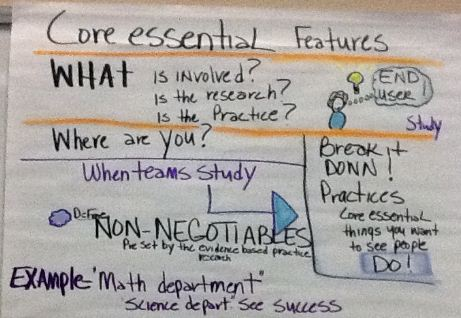 Core essential Features
WHAT is involved?
Is the research?
Is the Practice?
END
USER!
Study
Where are you?
When teams study
Define
NON-NEGOTIABLES
Pre set by the evidence based practice
Break it
DOWN!
Practices
Core essential
things you want
to see people
DO!
EXAMPLE- "Math department"
Science depart" See Success